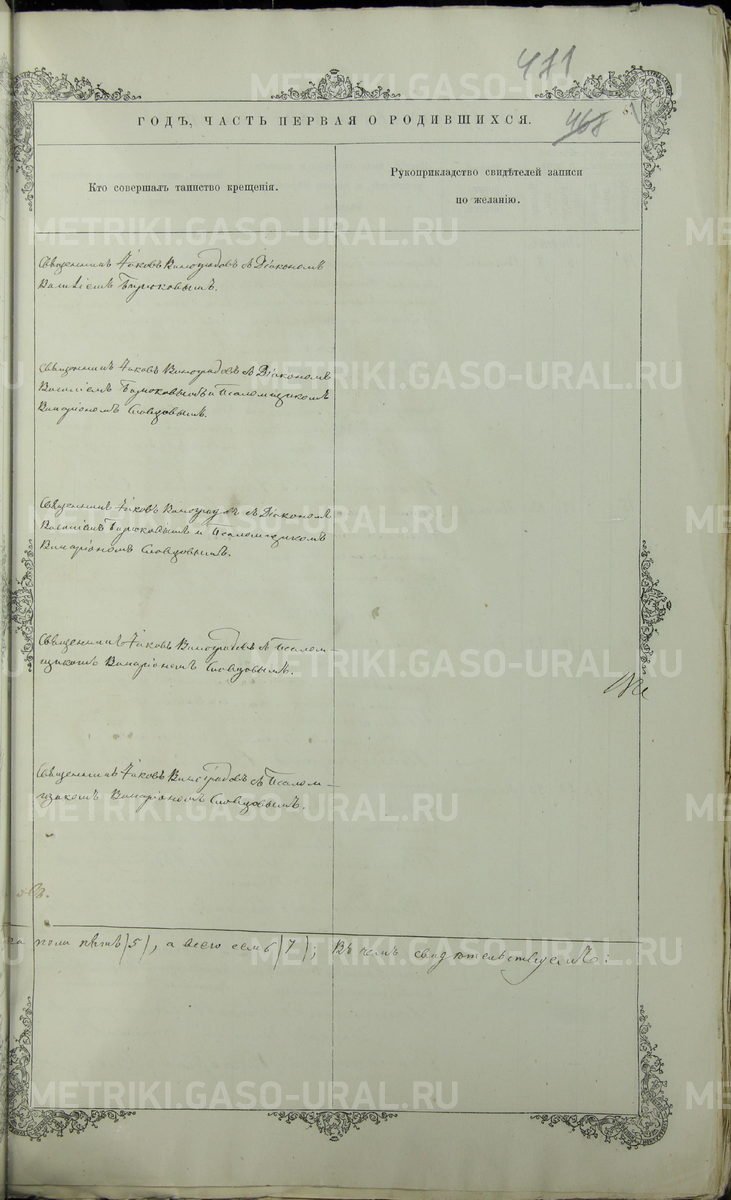 471
468
ГОДЪ, ЧАСТЬ ПЕРВАЯ О РОДИВШИХСЯ.
Кто совершалъ таинство крещенія.
Рукоприкладство свидѣтелей записи
по желанію.
Священникъ Іаковъ Виноградовъ съ Діакономъ
Василіемъ Бирюковымъ.
Священникъ Іаковъ Виноградовъ съ Діакономъ
Василіемъ Бирюковымъ и Псаломщикомъ
Иларіономъ Словцовымъ.
Священникъ Іаковъ Виноградовъ съ Діакономъ
Василіемъ Бирюковымъ и Псаломщикомъ
Иларіономъ Словцовымъ.
Священникъ Іаковъ Виноградовъ съ Псалом-
щикомъ Иларіономъ Словцовымъ.
Священникъ Іаковъ Виноградовъ съ Псалом-
щикомъ Иларіономъ Словцовымъ.
пола пять (5), а всего семь (7); Въ чемъ свидѣтельствуемъ:
METRIKI.GASO-URAL.RU